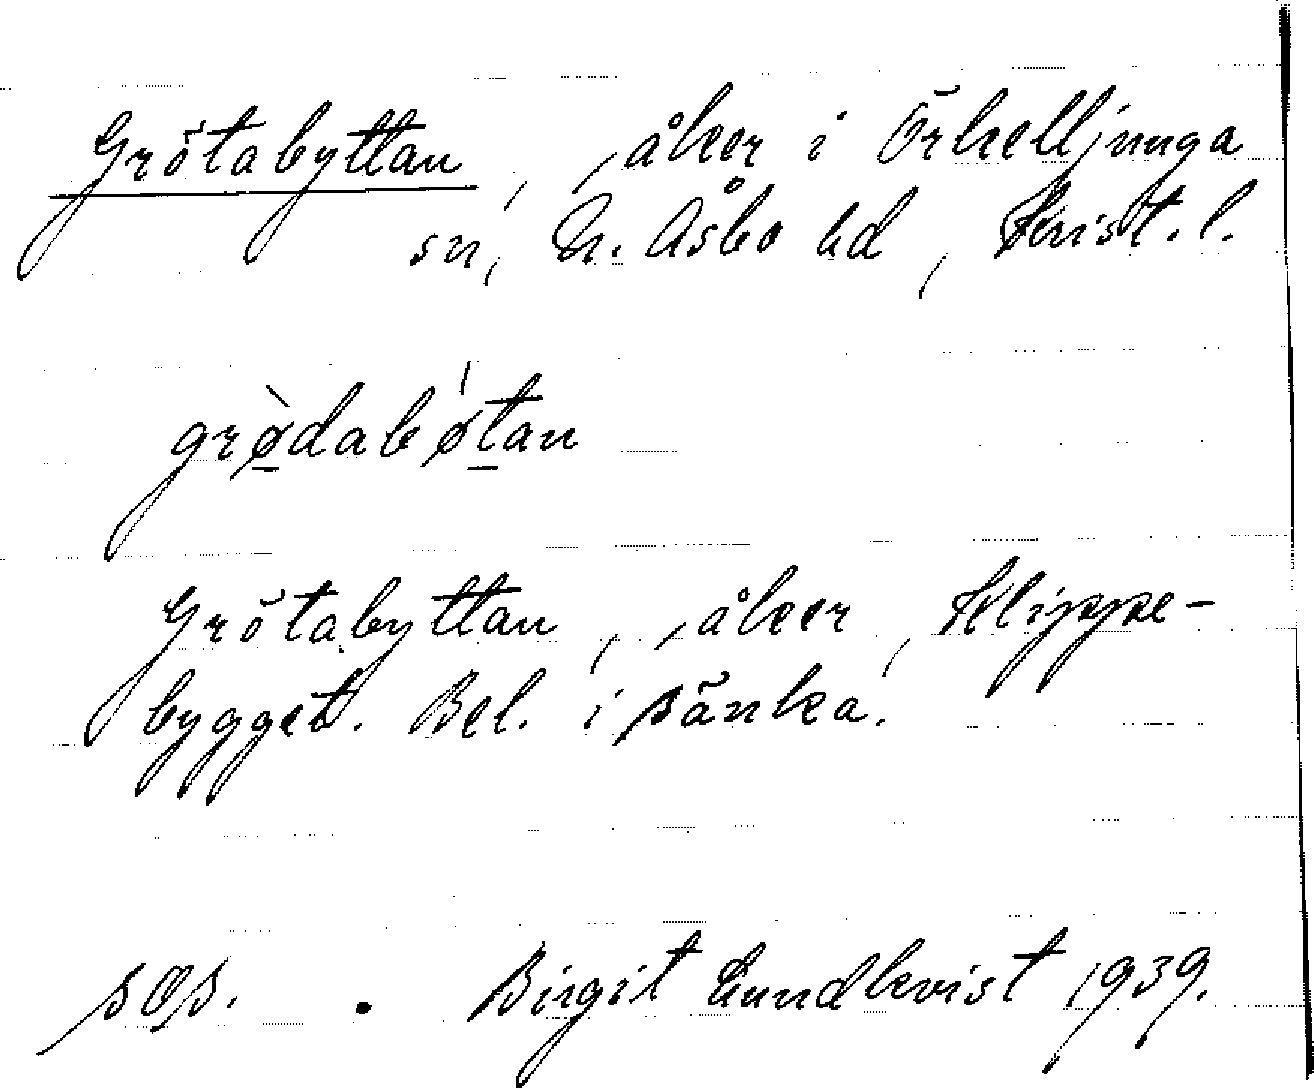 Grötabyttan, åker i Örkelljunga
sn, N. Åsbo hd, Krist. l.
grø̀dabǿtan
Grötabyttan, åker, Klippe-
bygget. Bel. i sänka.
Birgit Lundkvist 1939.